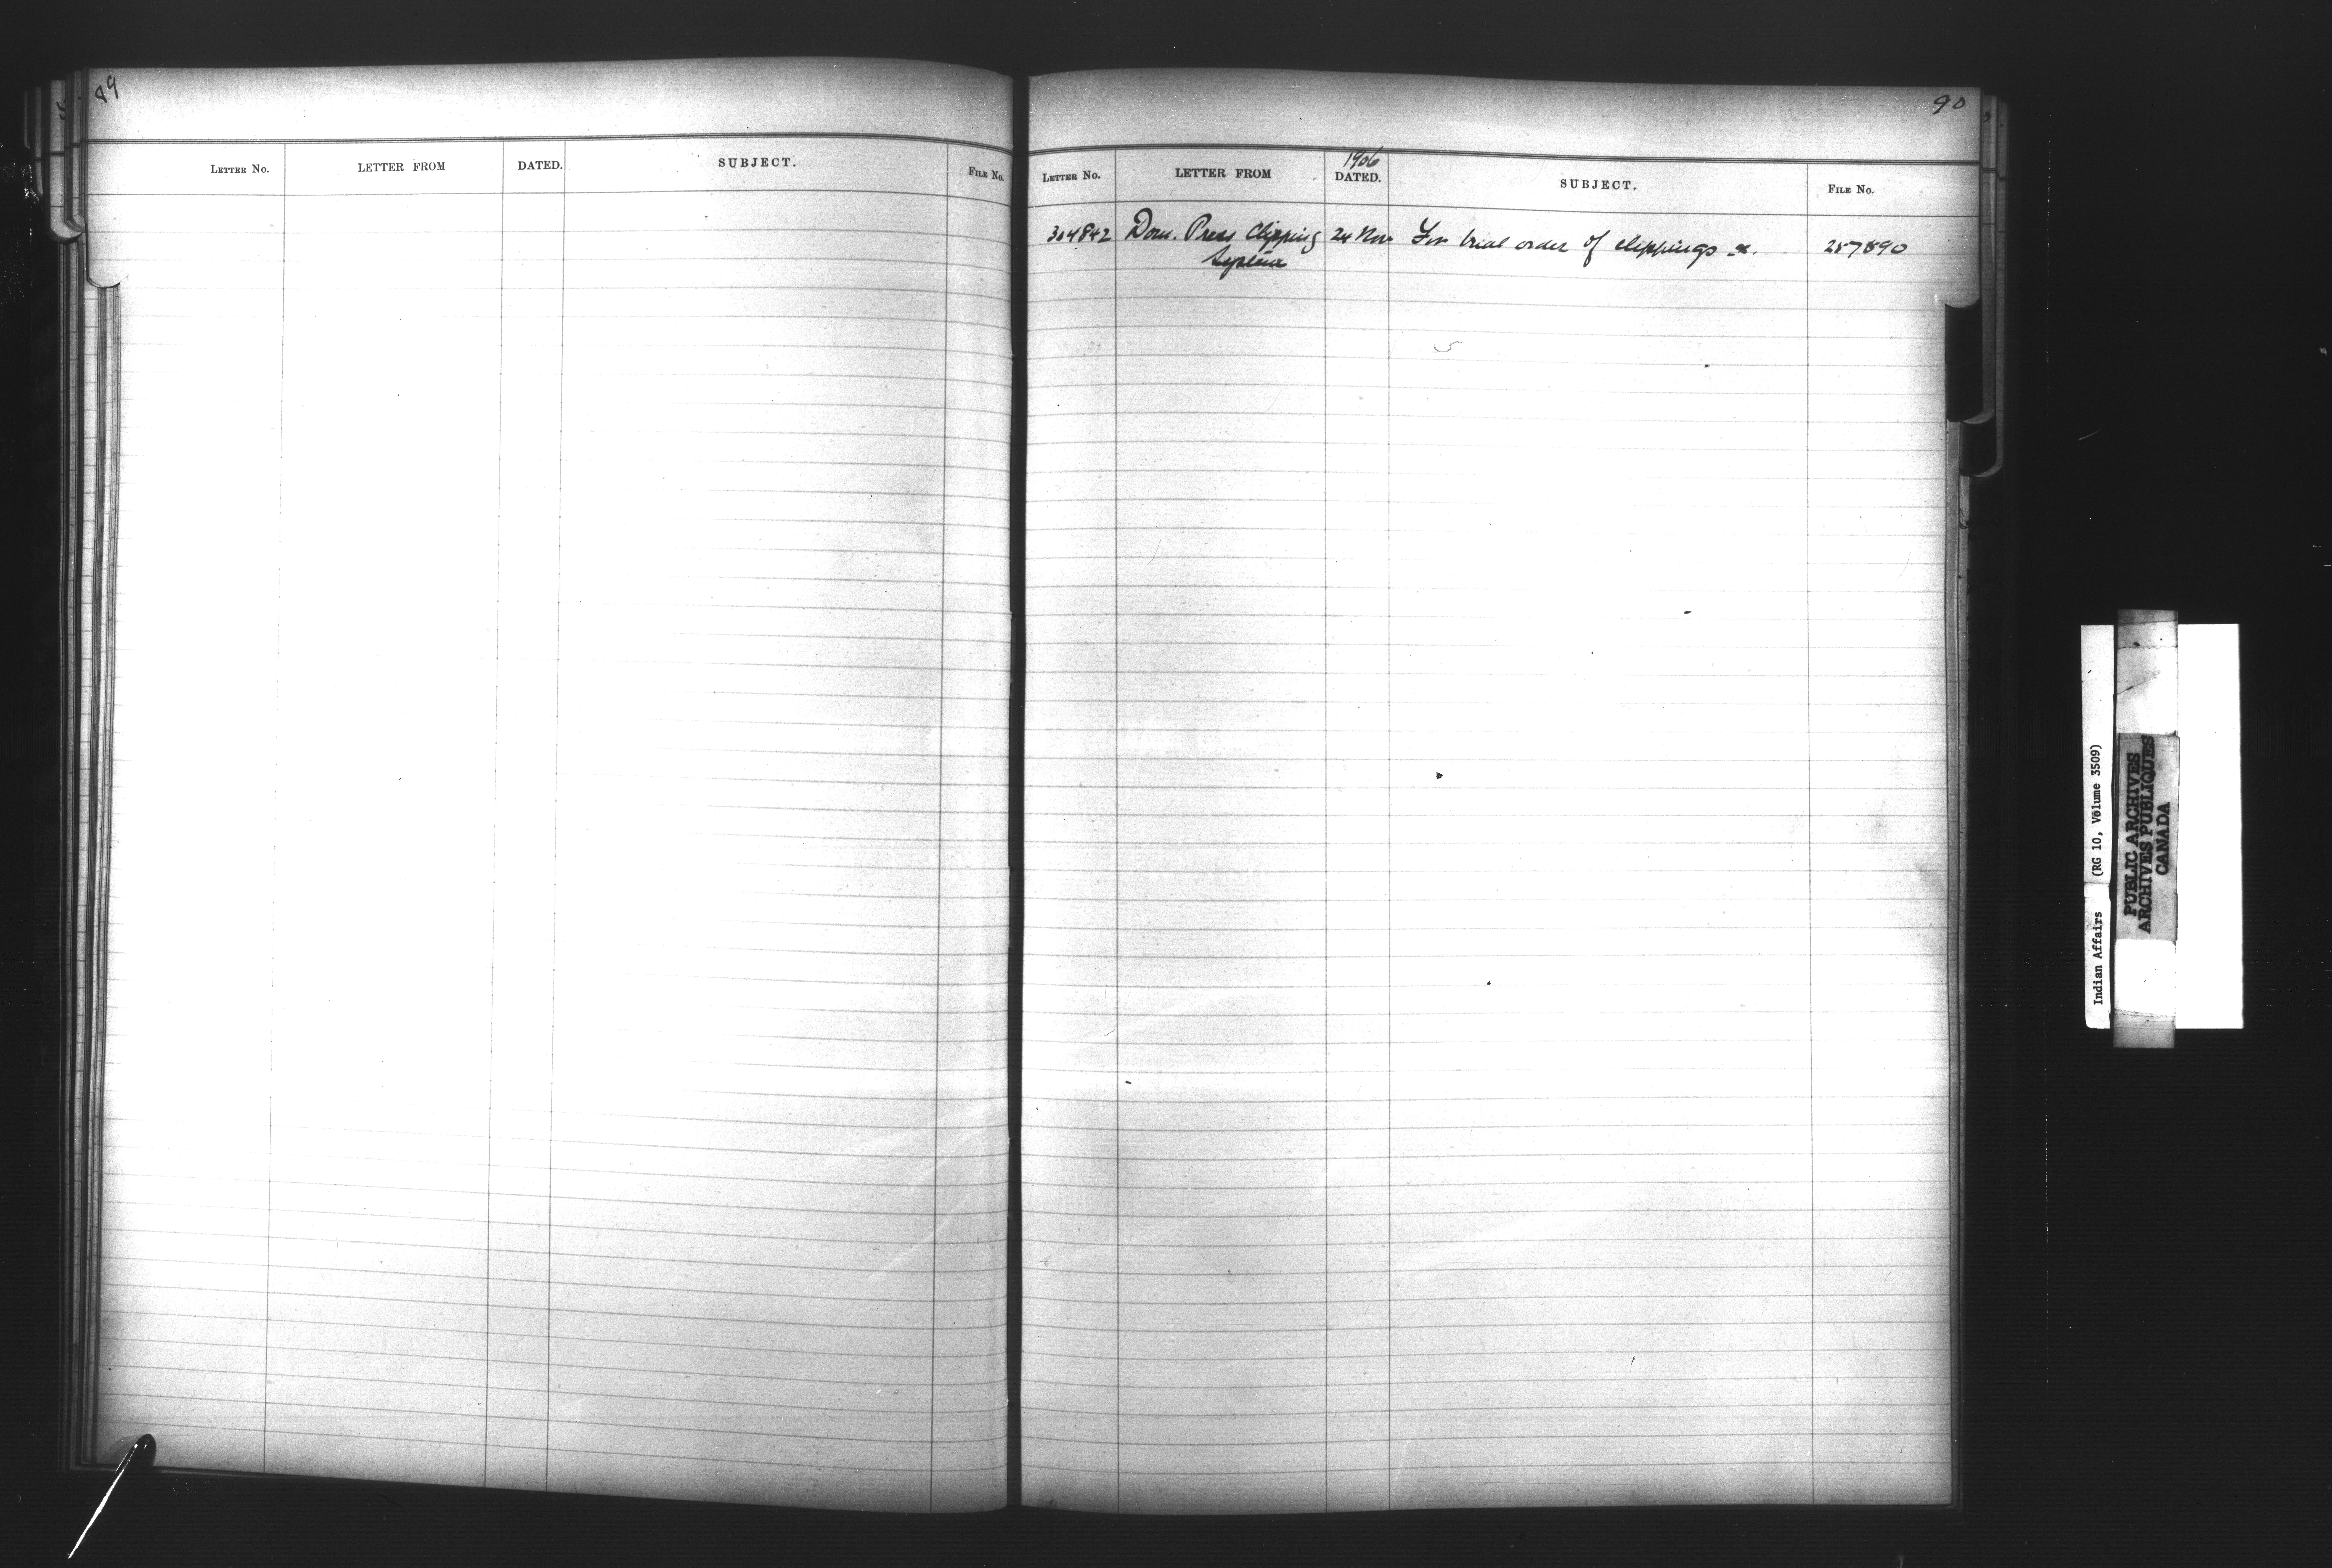 89
LETTER No. LETTER FROM DATED. SUBJECT. FILE No.
90
1906
LETTER No. LETTER FROM DATED. SUBJECT. FILE No.
304842 Dom. Press Clipping 24 Nov For trial order of clippings &c. 257890
System
Indian Affairs (RG 10, Volume 3509)
PUBLIC ARCHIVES
ARCHIVES PUBLIQUES
CANADA